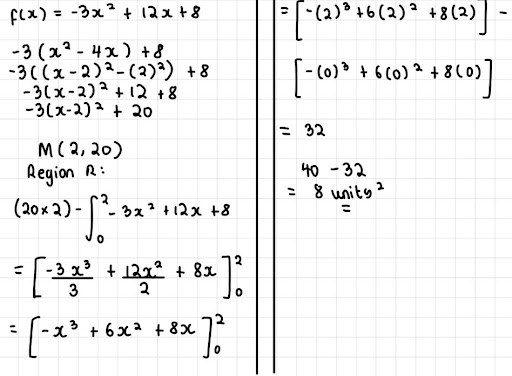 f(x) = -3x² + 12x + 8
-3(x² - 4x) + 8
-3((x-2)² - (2)²) + 8
-3(x-2)² + 12 + 8
-3(x-2)² + 20
M(2,20)
Region R:
(20×2) - ∫₀² -3x² + 12x + 8
= [-3x³/3 + 12x²/2 + 8x]₀²
= [-x³ + 6x² + 8x]₀²
= [-(2)³ + 6(2)² + 8(2)] -
[-(0)³ + 6(0)² + 8(0)]
= 32
40 - 32
= 8 units²